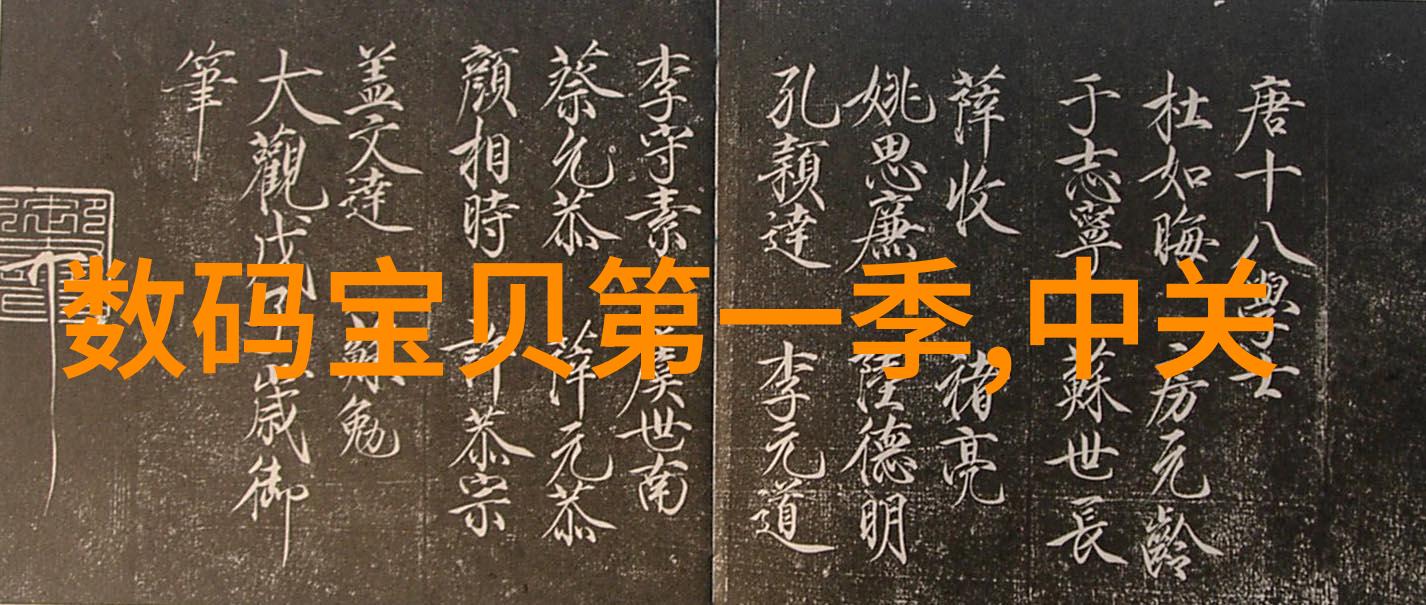 数码宝贝第一季,中关
唐十八學士
杜如晦 房元齡
于志寧 蘇世長
薛收 褚亮
姚思廉 陸德明
孔穎達 李元道
李守素 虞世南
蔡元恭 薛元恭
顏相時 許恭宗
盖文達 蘇勉
大觀戊子歲御
筆